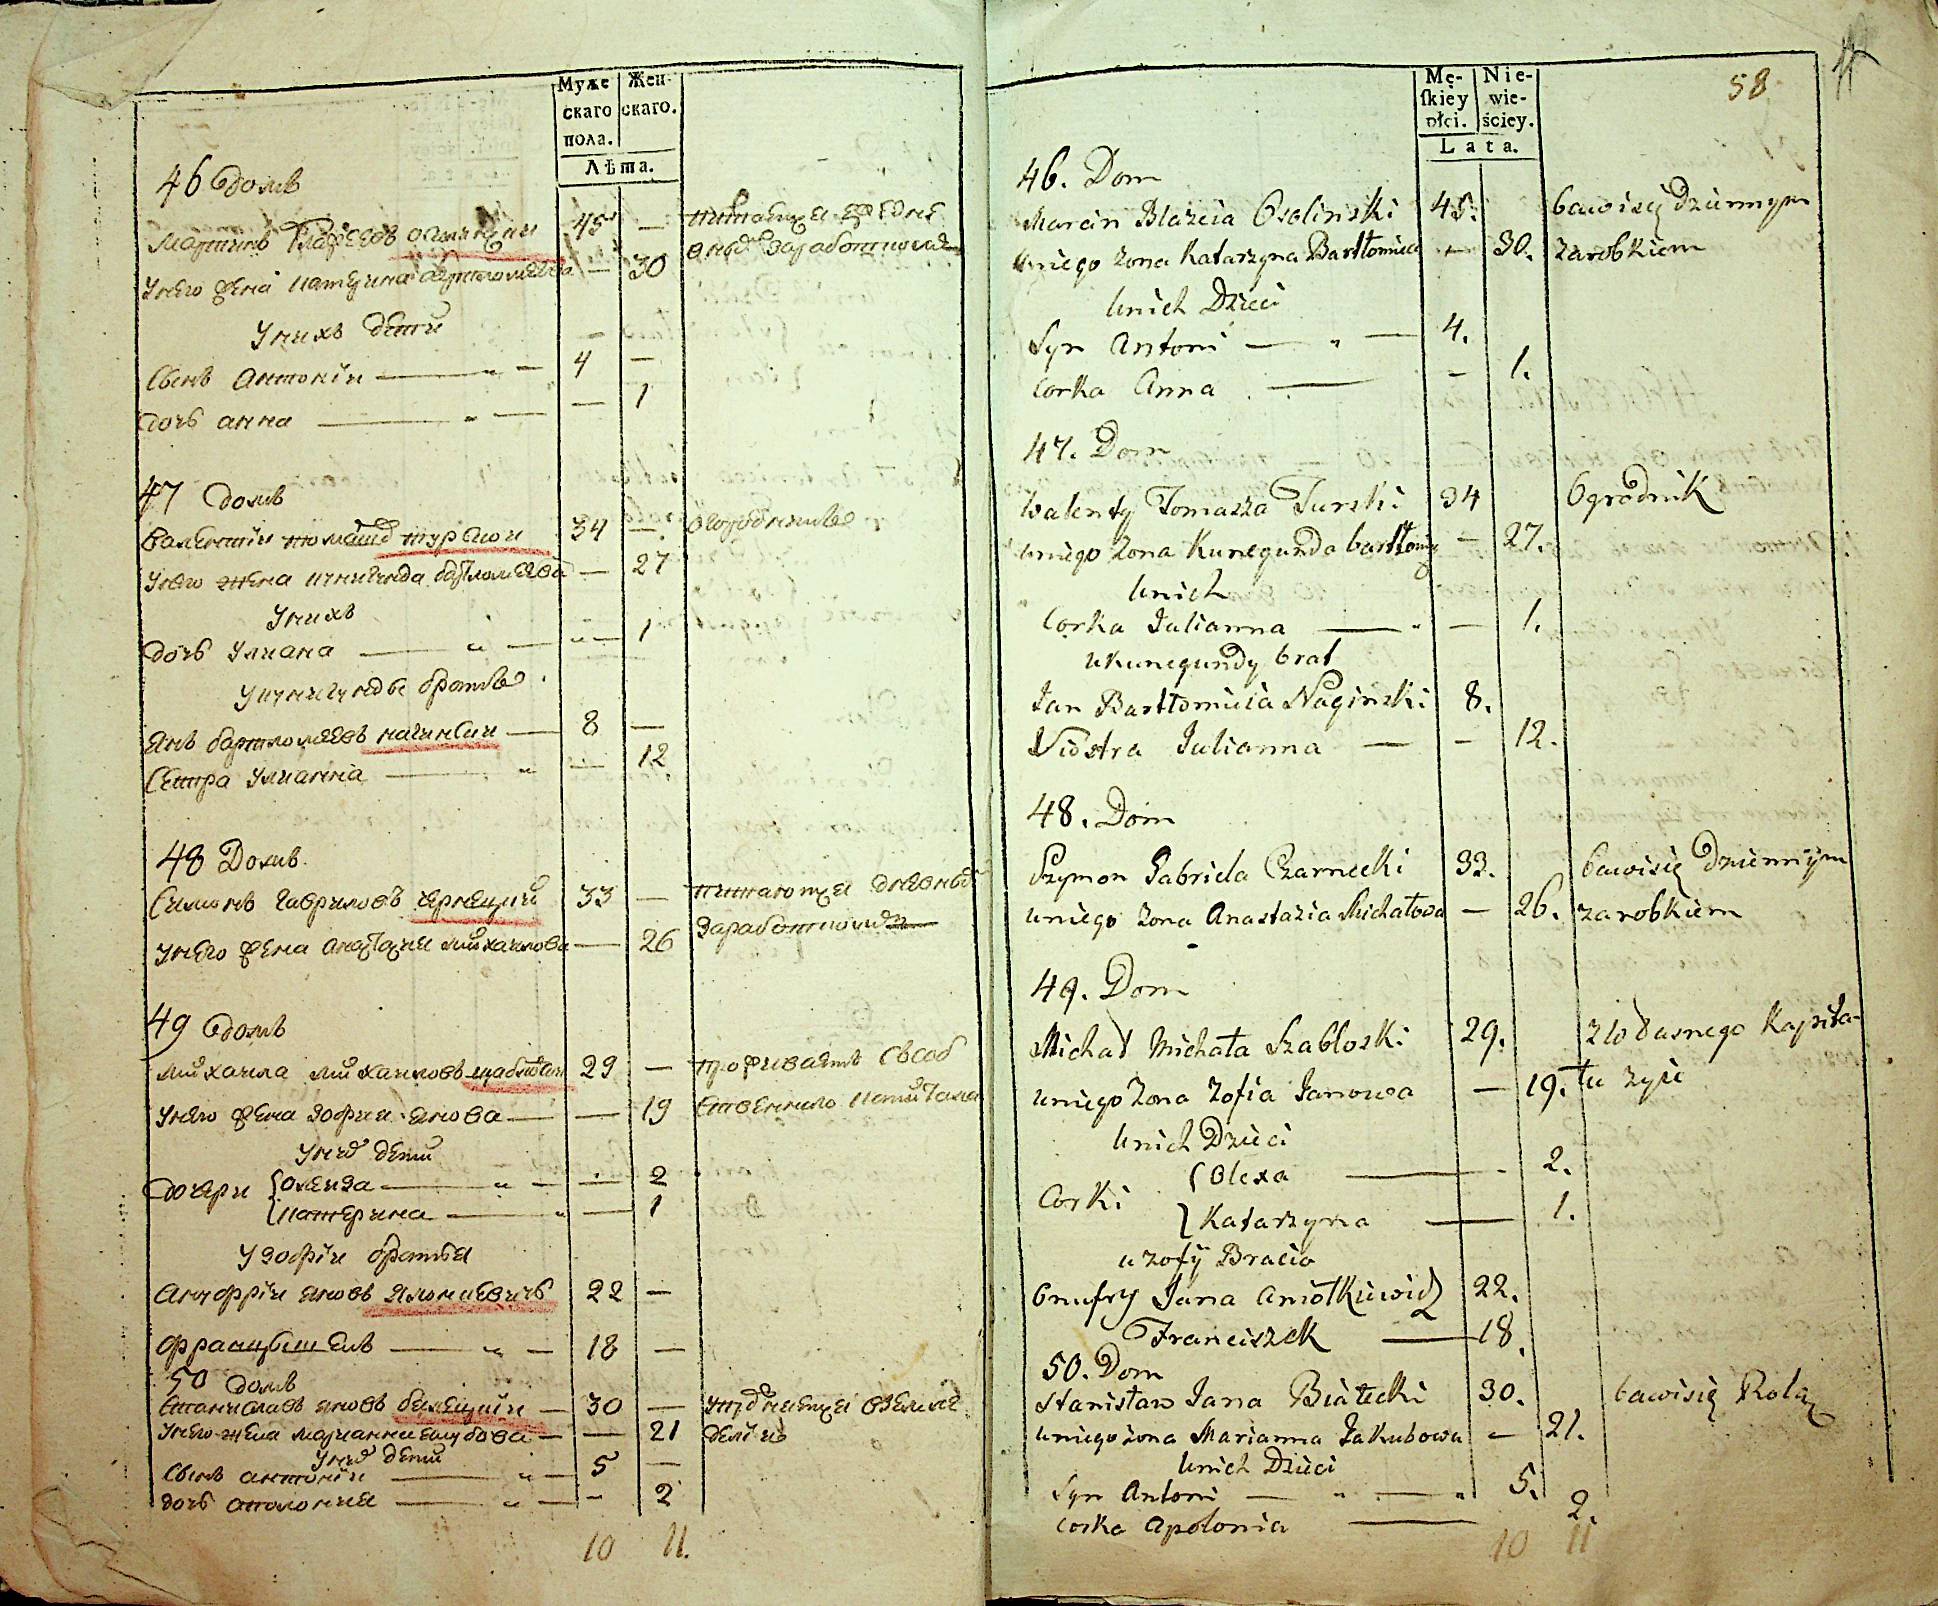 Муже
скаго
пола.
Жен-
скаго.
Лѣта.
46 домъ
Мартинъ Блажеевъ 45 —
Унего жена Катерина — 30
Унихъ дети
Сынъ Антонін — „ — 4 —
Дочь анна — „ — — 1
47 домъ
Валентін томаша турскіи 34 — огородникъ
Унего жена кунигунда бартломеева — 27
Унихъ
Дочь Улиана — „ — — 1
Укунигунды братъ
Янъ бартломеевъ нагинскии — 8 —
Сестра Улианна — „ — 12
48 Домъ
Симонъ Гавриловъ чернецкий 33 — питающеи дневны
Унего жена анастазия михаилова — 26 заработкомъ
49 домъ
михаила михаиловъ 29 — проживаетъ
Унего жена зофия янова — — 19
Уних дети
дочери {олекза — „ — — 2
{катерина — „ — 1
У зофіи братья
Ануфріи яновъ 22 —
францышекъ — „ — 18 —
50 домъ
Станиславъ яновъ белецкии — 30 —
Унего жена марианна якубова — — 21
Уних дети
Сынъ антоніи — „ — 5 —
дочь аполониа — „ — – 2
10 11.
Mę-
ſkiey
płci.
Nie-
wie-
ściey.
Lata.
58
46. Dom
Marcin Blazeia Osolinski 45. bawisię dziennym
uniego zona Katarzyna Bartłomieia — 30. zarobkiem
unich Dzieci
Syn Antoni — „ — 4.
Corka Anna — – 1.
47. Dom
Walenty Tomasza Turski 34 Ogrodnik
uniego zona Kunegunda bartłomiy – 27.
unich
Corka Julianna — „ — 1.
ukunegundy brat
Jan Bartłomieia Naginski 8.
Siostra Julianna — – 12.
48. Dom
Szymon Gabriela Czarnecki 33. bawisię dziennym
uniego zona Anastazia Michałowa — 26. zarobkiem
49. Dom
Michał Michała Szabloski 29. z własnego Kapita-
uniego zona Zofia Janowa — 19. łu zyie
unich Dzieci
Corki {Olexa — 2.
{Katarzyna — 1.
u zofij Bracia
Onufry Jana Aniołkiewicz 22.
Franciszek — 18.
50. Dom
Stanisław Jana Białecki 30. bawisię Rolą
uniego zona Marianna Jakubowa – 21.
unich Dzieci
Syn Antoni — „ — „ 5.
Corka Apolonia — 2.
10 11